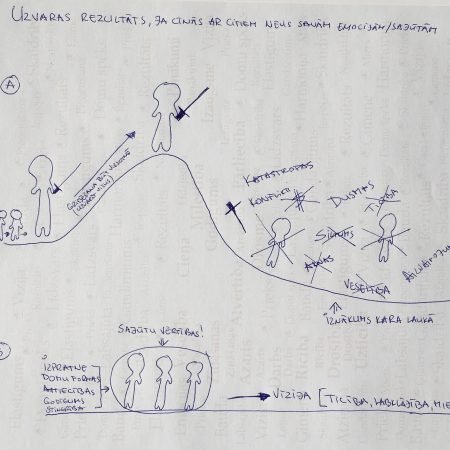 UZVARAS REZULTĀTS, JA CĪNĀS AR CITIEM NEVIS SAVĀM EMOCIJĀM/SAJŪTĀM
A
KATASTROFAS
KONFLIKTI $ DUSMAS
TICĪBA
SLIMĪBS
VESELĪBA
IZNĀKUMS KARA LAUKĀ
SAJŪTU VĒRTĪBAS!
IZPRATNE
DOMU FORMAS
ATTIECĪBAS
GODĪGUMS
STINGRĪBA
VĪZIJA [TICĪBA, LABKLĀJĪBA, MIE